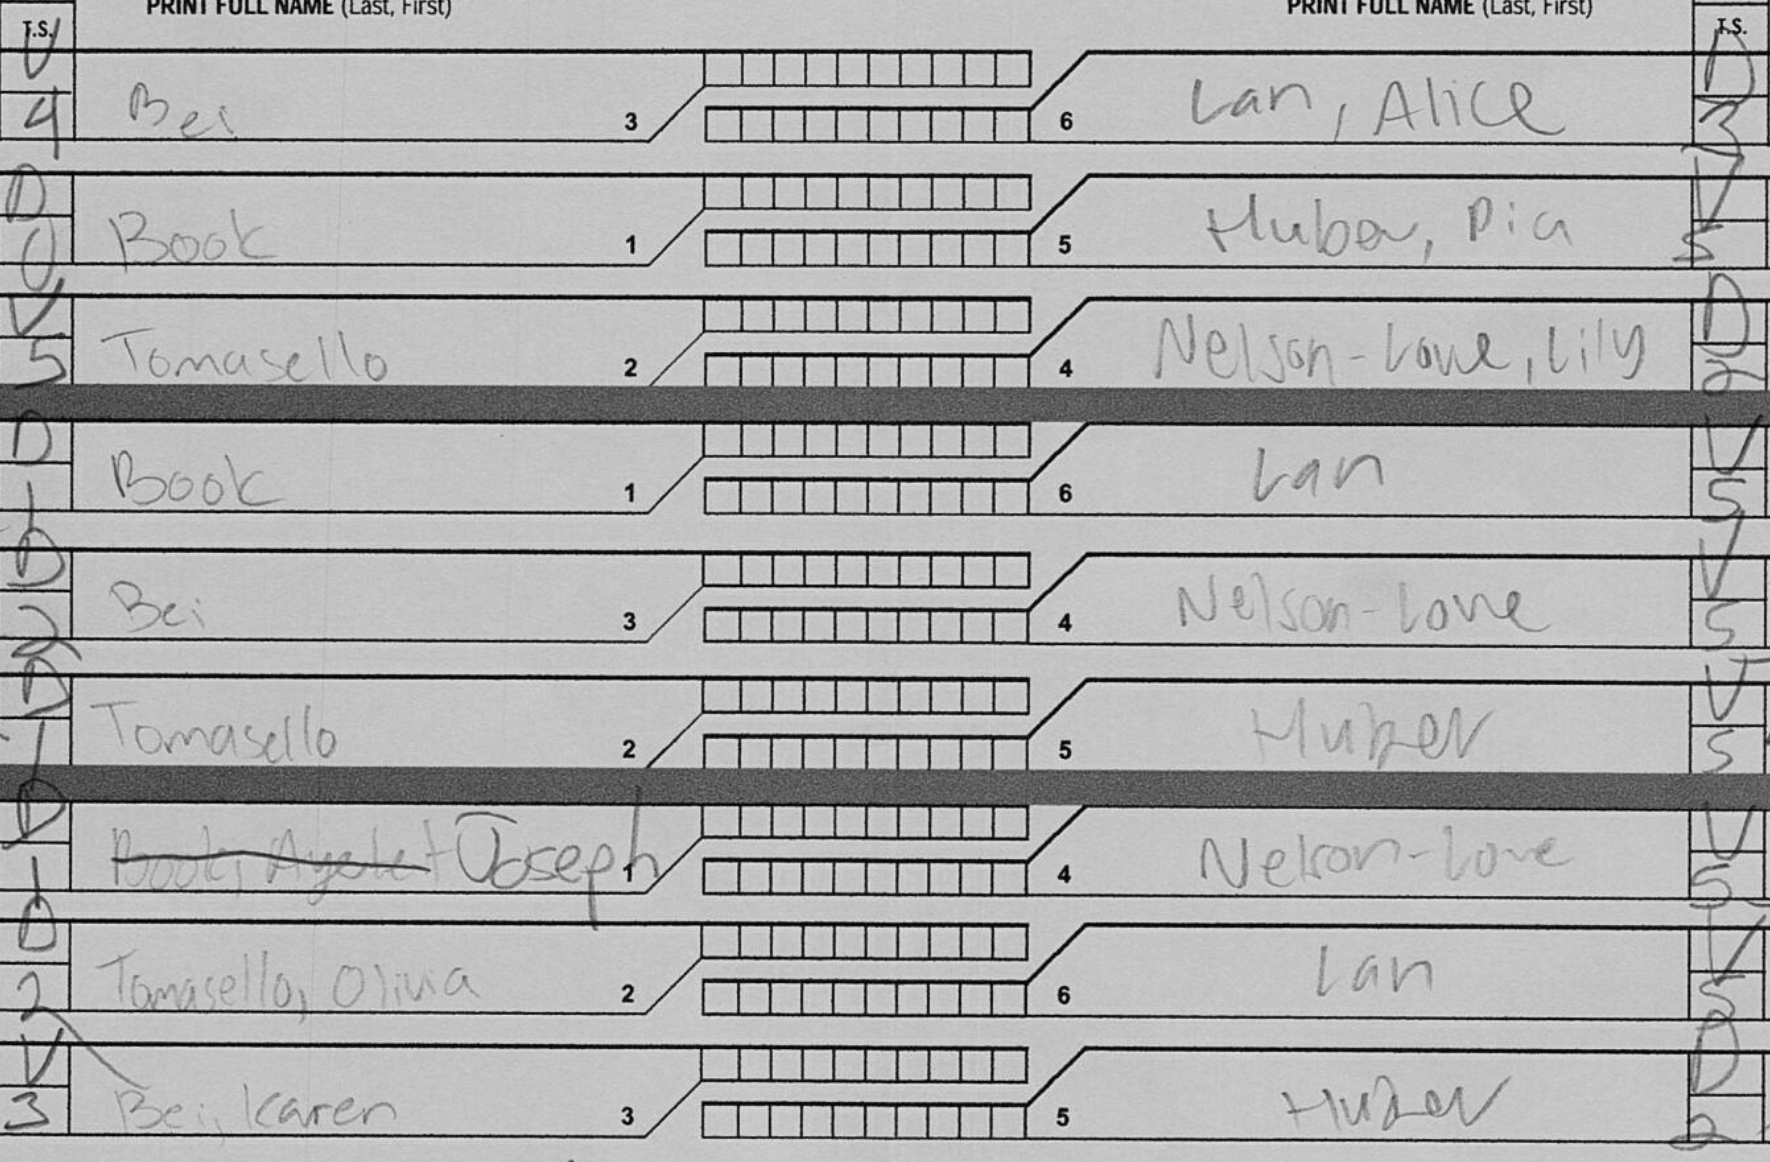 PRINT FULL NAME (Last, First) PRINT FULL NAME (Last, First)
T.S. T.S.
V D
4 Bei 3 6 Lan, Alice 3
D V
0 Book 1 5 Huber, Pia 5
V D
5 Tomasello 2 4 Nelson-Love, Lily 2
D V
1 Book 1 6 Lan 5
D V
2 Bei 3 4 Nelson-Love 5
D V
1 Tomasello 2 5 Huber 5
D V
1 Book, Ayelet Joseph 1 4 Nelson-Love 5
D V
2 Tomasello, Olivia 2 6 Lan 5
V D
3 Bei, Karen 3 5 Huber 2